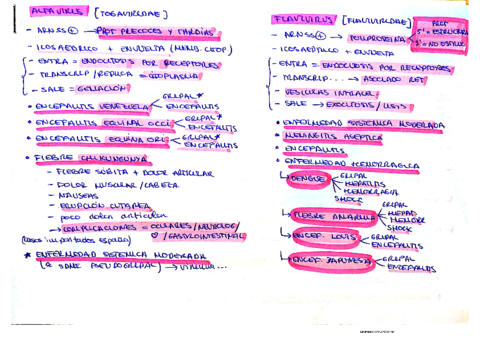 ALFAVIRUS [TOGAVIRIDAE]
- ARNSS⊕ → PROT PRECOCES Y TARDÍAS
- ICOSAÉDRICO + ENVUELTA
- ENTRA = ENDOCITOSIS POR RECEPTORES
- TRANSCRIP/REPLICA = CITOPLASMA
- SALE = GEMACIÓN
• ENCEFALITIS VENEZUELA GRIPAL* ENCEFALITIS
• ENCEFALITIS EQUINA OCCI GRIPAL* ENCEFALITIS
• ENCEFALITIS EQUINA ORI GRIPAL* ENCEFALITIS
• FIEBRE CHIKUNGUNYA
- FIEBRE SÚBITA + DOLOR ARTICULAR
- DOLOR MUSCULAR/CABEZA
- NAUSEAS
- ERUPCIÓN CUTANEA
- poco dolor articular
→ COMPLICACIONES = OCULARES/NEUROLOG/
♡/GASTROINTESTINAL
(casos importados españa)
* ENFERMEDAD SISTEMICA MODERADA
PSEUDOGRIPAL) →
FLAVIVIRUS [FLAVIVIRIDAE]
PROT
5' = ESTRUCTURA
3' = NO ESTRUC
- ARNSS⊕ → POLIPROTEINA
- ICOSAÉDRICO + ENVUELTA
- ENTRA = ENDOCITOSIS POR RECEPTORES
- TRANSCRIP... → ASOCIADO RET
- VESICULAS INTRACEL
- SALE → EXOCITOSIS/LISIS
• ENFERMEDAD SISTEMICA MODERADA
• MENINGITIS ASEPTICA
• ENCEFALITIS
• ENFERMEDAD HEMORRAGICA
↳ DENGUE GRIPAL
HEPATITIS
HEMORRAGIA
SHOCK
↳ FIEBRE AMARILLA GRIPAL
HEPAT
HEMORR
SHOCK
↳ ENCEF. LOUIS GRIPAL
ENCEFALITIS
↳ ENCEF JAPONESA GRIPAL
ENCEFALITIS